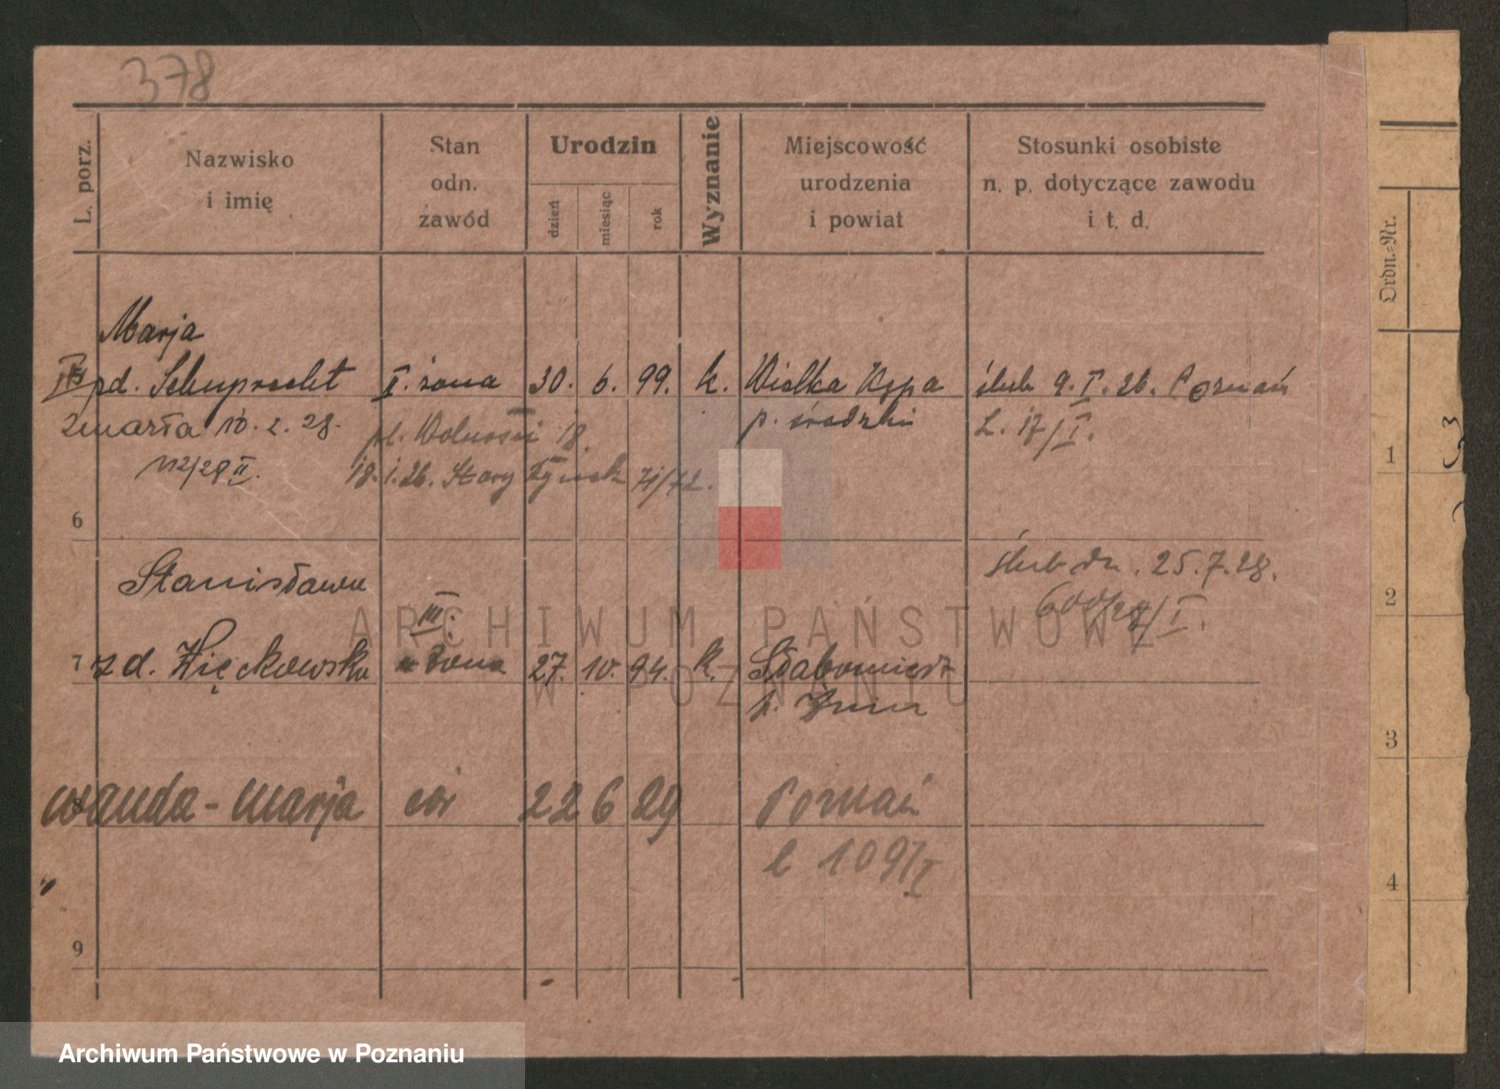 378
L. porz.
Nazwisko
i imię
Stan
odn.
zawód
Urodzin
dzień
miesiąc
rok
Wyznanie
Miejscowość
urodzenia
i powiat
Stosunki osobiste
n. p. dotyczące zawodu
i t. d.
Marja
zd. II. żona 30. 6. 99. k. Wielka Kępa ślub 9. I. 26. Poznań
zmarła 10. 2. 28. pl. Wolności 18. p. średzki L. 17/I.
112/28 II. 18. 1. 26. Stary Rynek 71/72.
6
Stanisława ślub dn. 25.7.28.
III. 600/28/I.
7 zd. Więckowska żona 27. 10. 94. k. Słabomierz
p. Żnin
Wanda - Marja cór 22 6 29 Poznań
l 1097/I
9
Ordn.-Nr.
1
2
3
4
ARCHIWUM PAŃSTWOWE
W POZNANIU
Archiwum Państwowe w Poznaniu